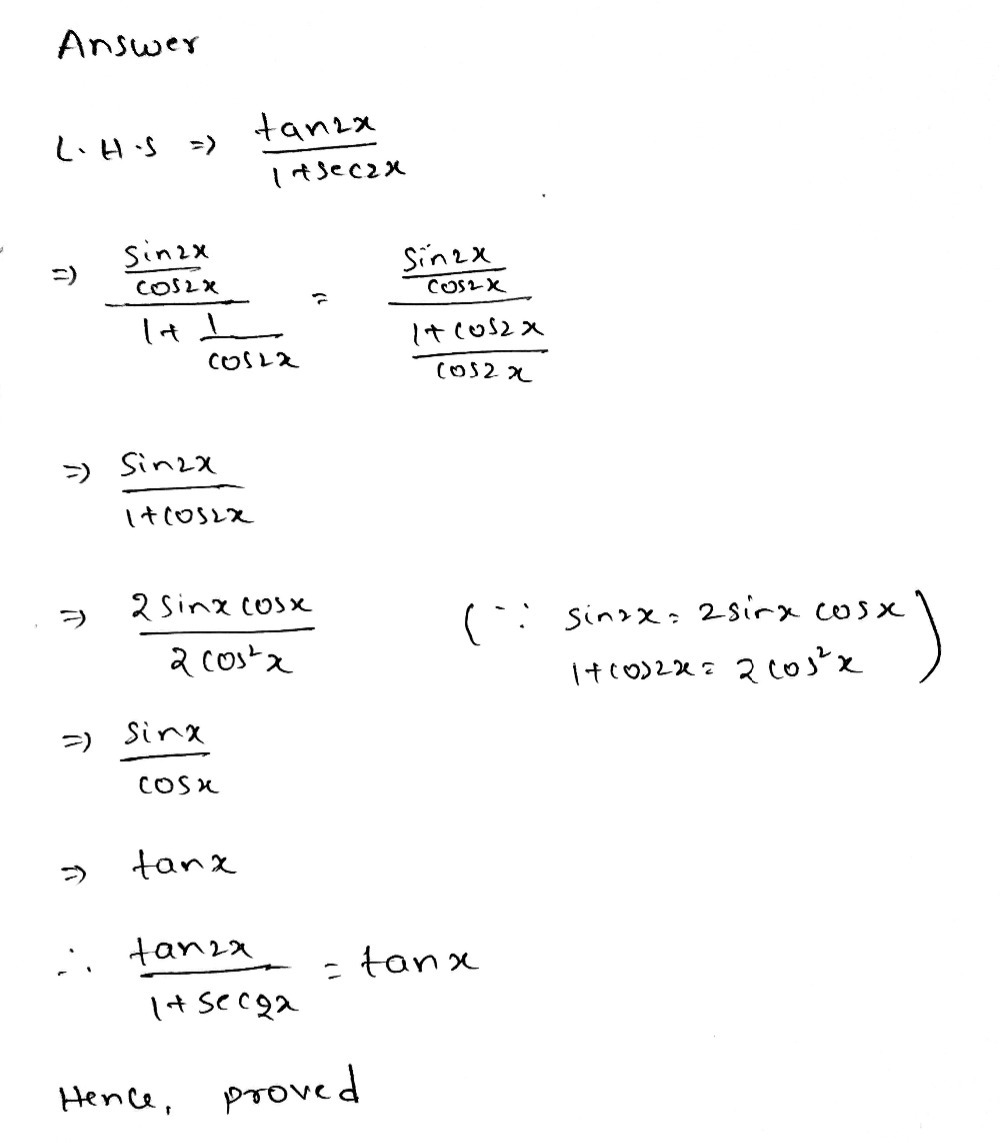 Answer
L.H.S => tan2x / 1+sec2x
=> (sin2x / cos2x) / (1+ 1/cos2x) = (sin2x / cos2x) / (1+cos2x / cos2x)
=> sin2x / 1+cos2x
=> 2 sinx cosx / 2 cos²x (∵ sin2x = 2sinx cosx
1+cos2x = 2 cos²x)
=> sinx / cosx
=> tanx
∴ tan2x / 1+sec2x = tanx
Hence, proved